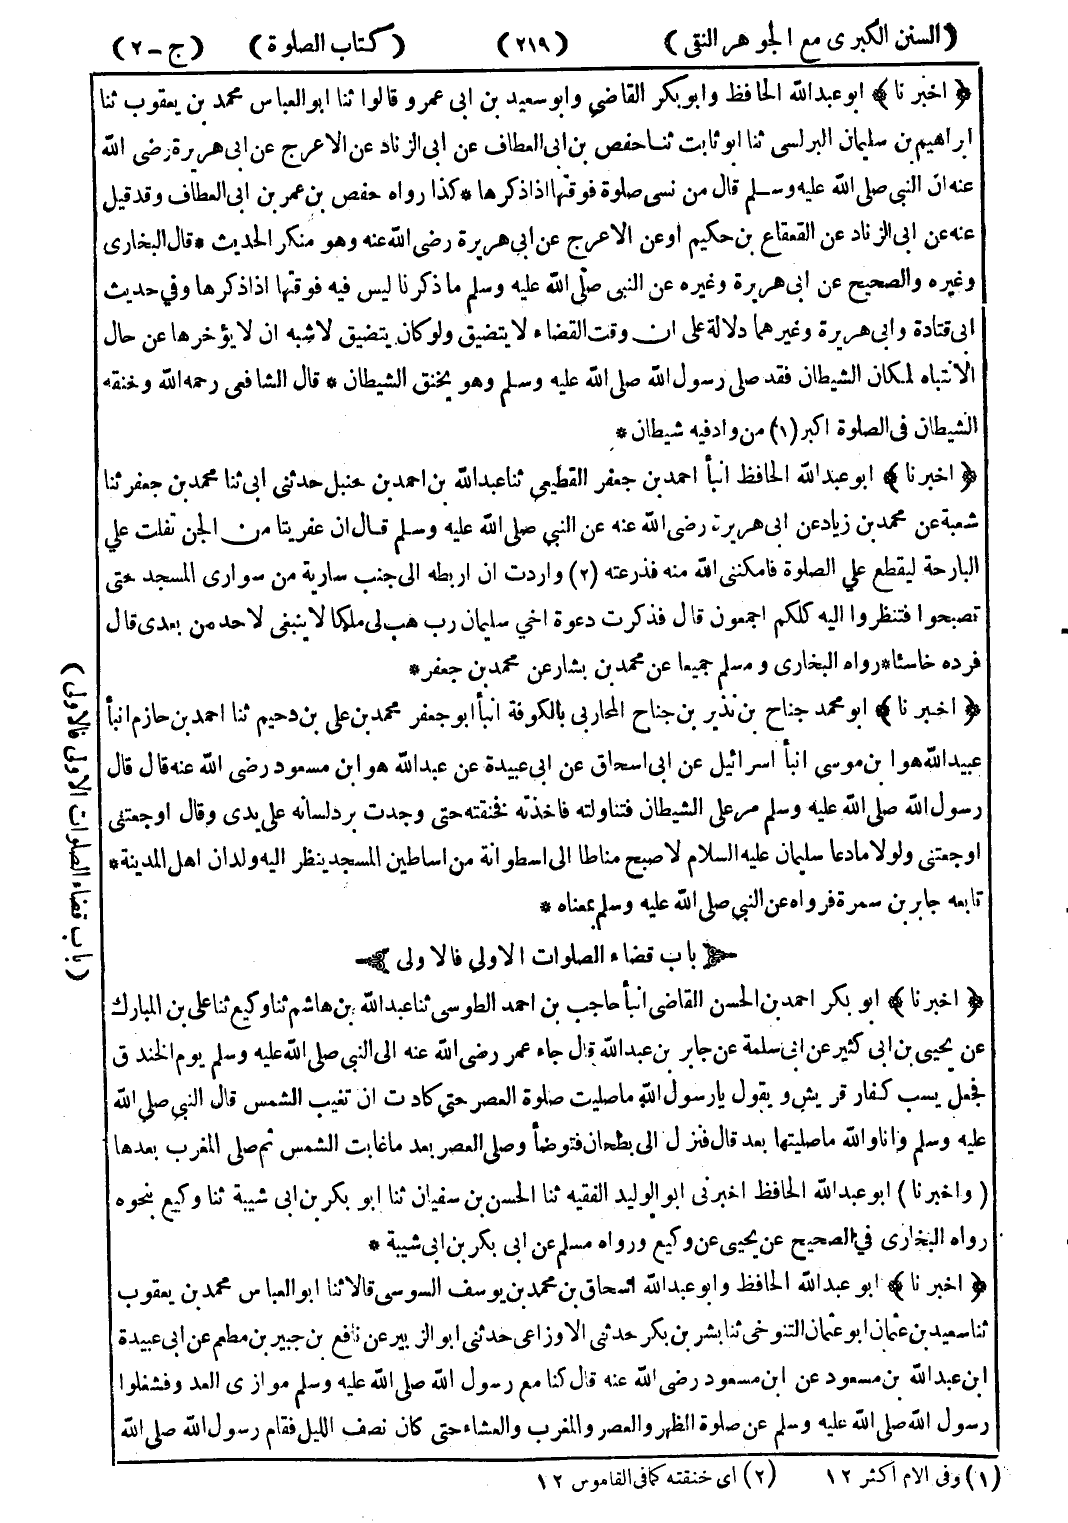 (السنن الكبرى مع الجوهر النقى) (٢١٩) (كتاب الصلوة) (ج-٢)
﴿ اخبرنا ﴾ ابو عبد الله الحافظ وابو بكر القاضي وابو سعيد بن ابى عمرو قالوا ثنا ابو العباس محمد بن يعقوب ثنا
ابراهيم بن سليمان البرلسى ثنا ابو ثابت ثنا حفص بن ابى العطاف عن ابى الزناد عن الاعرج عن ابى هريرة رضى الله
عنه ان النبي صلى الله عليه وسلم قال من نسى صلوة فوقتها اذا ذكرها * كذا رواه حفص بن عمر بن ابى العطاف وقد قيل
عنه عن ابى الزناد عن القعقاع بن حكيم او عن الاعرج عن ابى هريرة رضى الله عنه وهو منكر الحديث * قال البخارى
وغيره والصحيح عن ابى هريرة وغيره عن النبى صلى الله عليه وسلم ما ذكرنا ليس فيه فوقتها اذا ذكرها وفي حديث
ابى قتادة وابى هريرة وغيرهما دلالة على ان وقت القضاء لا يتضيق ولو كان يتضيق لاشبه ان لا يؤخرها عن حال
الانتباه لمكان الشيطان فقد صلى رسول الله صلى الله عليه وسلم وهو يخنق الشيطان * قال الشافعى رحمه الله وخنقه
الشيطان فى الصلوة اكبر (١) من واد فيه شيطان *
﴿ اخبرنا ﴾ ابو عبد الله الحافظ انبأ احمد بن جعفر القطيعي ثنا عبد الله بن احمد بن حنبل حدثنى ابى ثنا محمد بن جعفر ثنا
شعبة عن محمد بن زياد عن ابى هريرة رضى الله عنه عن النبي صلى الله عليه وسلم قال ان عفريتا من الجن تفلت علي
البارحة ليقطع علي الصلوة فامكننى الله منه فذرعته (٢) واردت ان اربطه الى جنب سارية من سوارى المسجد حتى
تصبحوا فتنظروا اليه كلكم اجمعون قال فذكرت دعوة اخي سليمان رب هب لى ملكا لا ينبغى لاحد من بعدى قال
فرده خاسئا * رواه البخارى و مسلم جميعا عن محمد بن بشار عن محمد بن جعفر *
﴿ اخبرنا ﴾ ابو محمد جناح بن نذير بن جناح المحاربى بالكوفة انبأ ابو جعفر محمد بن على بن دحيم ثنا احمد بن حازم انبأ
عبيد الله هو ابن موسى انبأ اسرائيل عن ابى اسحاق عن ابى عبيدة عن عبد الله هو ابن مسعود رضى الله عنه قال قال
رسول الله صلى الله عليه وسلم مر على الشيطان فتناولته فاخذته فخنقته حتى وجدت برد لسانه على يدى وقال اوجعتنى
اوجعتنى ولولا ما دعا سليمان عليه السلام لاصبح مناطا الى اسطوانة من اساطين المسجد ينظر اليه ولدان اهل المدينة *
تابعه جابر بن سمرة فرواه عن النبي صلى الله عليه وسلم بمعناه *
باب قضاء الصلوات الاولى فالاولى
﴿ اخبرنا ﴾ ابو بكر احمد بن الحسن القاضى انبأ حاجب بن احمد الطوسى ثنا عبد الله بن هاشم ثنا وكيع ثنا على بن المبارك
عن يحيى بن ابى كثير عن ابى سلمة عن جابر بن عبد الله قال جاء عمر رضى الله عنه الى النبي صلى الله عليه وسلم يوم الخندق
فجعل يسب كفار قريش و يقول يا رسول الله ما صليت صلوة العصر حتى كادت ان تغيب الشمس قال النبي صلى الله
عليه وسلم وانا والله ما صليتها بعد قال فنزل الى بطحان فتوضأ وصلى العصر بعد ما غابت الشمس ثم صلى المغرب بعدها
(واخبرنا) ابو عبد الله الحافظ اخبرنى ابو الوليد الفقيه ثنا الحسن بن سفيان ثنا ابو بكر بن ابى شيبة ثنا وكيع بنحوه
رواه البخارى في الصحيح عن يحيى عن وكيع ورواه مسلم عن ابى بكر بن ابى شيبة *
﴿ اخبرنا ﴾ ابو عبد الله الحافظ وابو عبد الله اسحاق بن محمد بن يوسف السوسى قالا ثنا ابو العباس محمد بن يعقوب
ثنا سعيد بن عثمان ابو عثمان التنوخى ثنا بشر بن بكر حدثنى الاوزاعى حدثنى ابو الزبير عن نافع بن جبير بن مطعم عن ابى عبيدة
ابن عبد الله بن مسعود عن ابن مسعود رضى الله عنه قال كنا مع رسول الله صلى الله عليه وسلم موازى العدو فشغلوا
رسول الله صلى الله عليه وسلم عن صلوة الظهر والعصر والمغرب والعشاء حتى كان نصف الليل فقام رسول الله صلى الله
(١) وفى الام اكثر ١٢ (٢) اى خنقته كما فى القاموس ١٢
(باب قضاء الصلوات الاولى فالاولى)